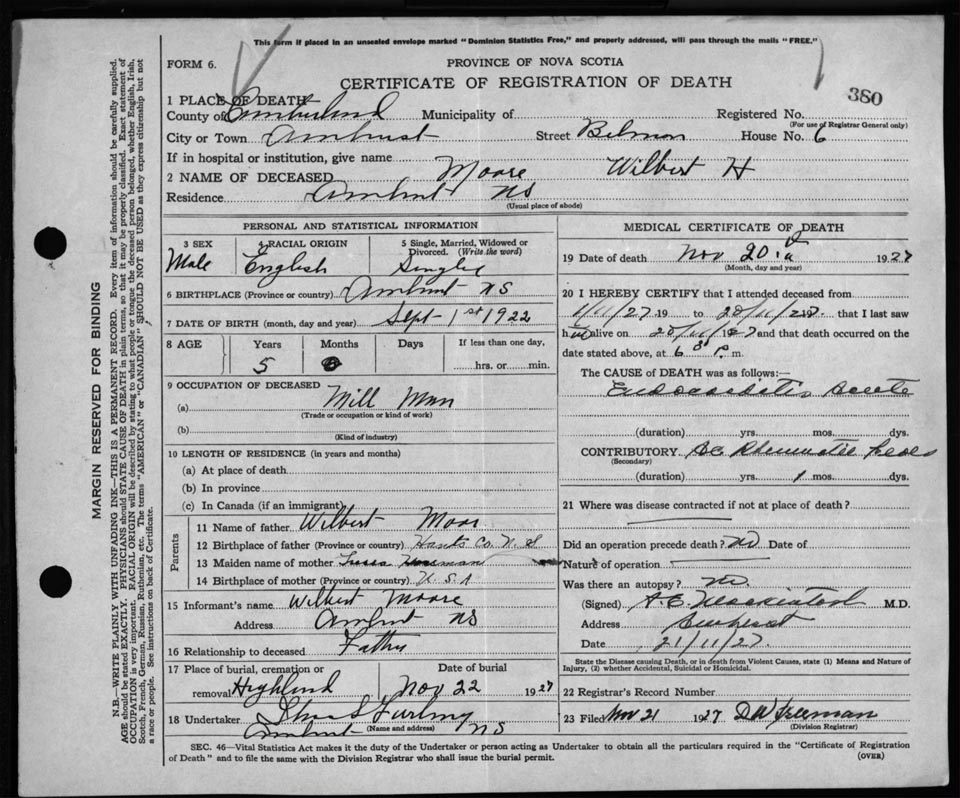 This form if placed in an unsealed envelope marked "Dominion Statistics Free," and properly addressed, will pass through the mails "FREE."
FORM 6.
PROVINCE OF NOVA SCOTIA
CERTIFICATE OF REGISTRATION OF DEATH
380
1 PLACE OF DEATH
County of Cumberland Municipality of Registered No.
(For use of Registrar General only)
City or Town Amherst Street Belmon House No. 6
If in hospital or institution, give name
2 NAME OF DECEASED Moore Wilbert H
Residence Amherst NS
(Usual place of abode)
PERSONAL AND STATISTICAL INFORMATION
3 SEX 4 RACIAL ORIGIN 5 Single, Married, Widowed or Divorced. (Write the word)
Male English Single
6 BIRTHPLACE (Province or country) Amherst NS
7 DATE OF BIRTH (month, day and year) Sept 1st 1922
8 AGE Years Months Days If less than one day,
5 hrs. or min.
9 OCCUPATION OF DECEASED
(a) Mill Man
(Trade or occupation or kind of work)
(b)
(Kind of industry)
10 LENGTH OF RESIDENCE (in years and months)
(a) At place of death
(b) In province
(c) In Canada (if an immigrant)
Parents
11 Name of father Wilbert Moore
12 Birthplace of father (Province or country) Hants Co. N.S
13 Maiden name of mother
14 Birthplace of mother (Province or country) U.S.A
15 Informant's name Wilbert Moore
Address Amherst NS
16 Relationship to deceased Father
17 Place of burial, cremation or removal Highland Date of burial Nov 22 1927
18 Undertaker Furlong
Amherst (Name and address) NS
MEDICAL CERTIFICATE OF DEATH
19 Date of death Nov 20th 1927
(Month, day and year)
20 I HEREBY CERTIFY that I attended deceased from
/11/27 19 to 20/11/27 19 that I last saw
him alive on 20/11/ 1927 and that death occurred on
date stated above, at 6 P. m.
The CAUSE OF DEATH was as follows:—
Endocarditis Acute
(duration) yrs. mos. dys.
CONTRIBUTORY Rheumatic
(Secondary)
(duration) yrs. 1 mos. dys.
21 Where was disease contracted if not at place of death?
Did an operation precede death? No Date of
Nature of operation
Was there an autopsy? no.
(Signed) M.D.
Address Amherst
Date 21/11/27.
State the Disease causing Death, or in death from Violent Causes, state (1) Means and Nature of Injury, (2) whether Accidental, Suicidal or Homicidal.
22 Registrar's Record Number
23 Filed Nov 21 1927 Freeman
(Division Registrar)
SEC. 46—Vital Statistics Act makes it the duty of the Undertaker or person acting as Undertaker to obtain all the particulars required in the "Certificate of Registration
of Death" and to file the same with the Division Registrar who shall issue the burial permit. (OVER)
MARGIN RESERVED FOR BINDING
N.B.—WRITE PLAINLY WITH UNFADING INK—THIS IS A PERMANENT RECORD. Every item of information should be carefully supplied.
AGE should be stated EXACTLY. PHYSICIANS should STATE CAUSE OF DEATH in plain terms, so that it may be properly classified. Exact statement of
OCCUPATION is very important. RACIAL ORIGIN will be described by stating to what people or tongue the deceased person belonged, whether English, Irish,
Scotch, French, German, Russian, Ruthenian, etc. The terms "AMERICAN" or "CANADIAN" SHOULD NOT BE USED as they express citizenship but not
a race or people. See instructions on back of Certificate.